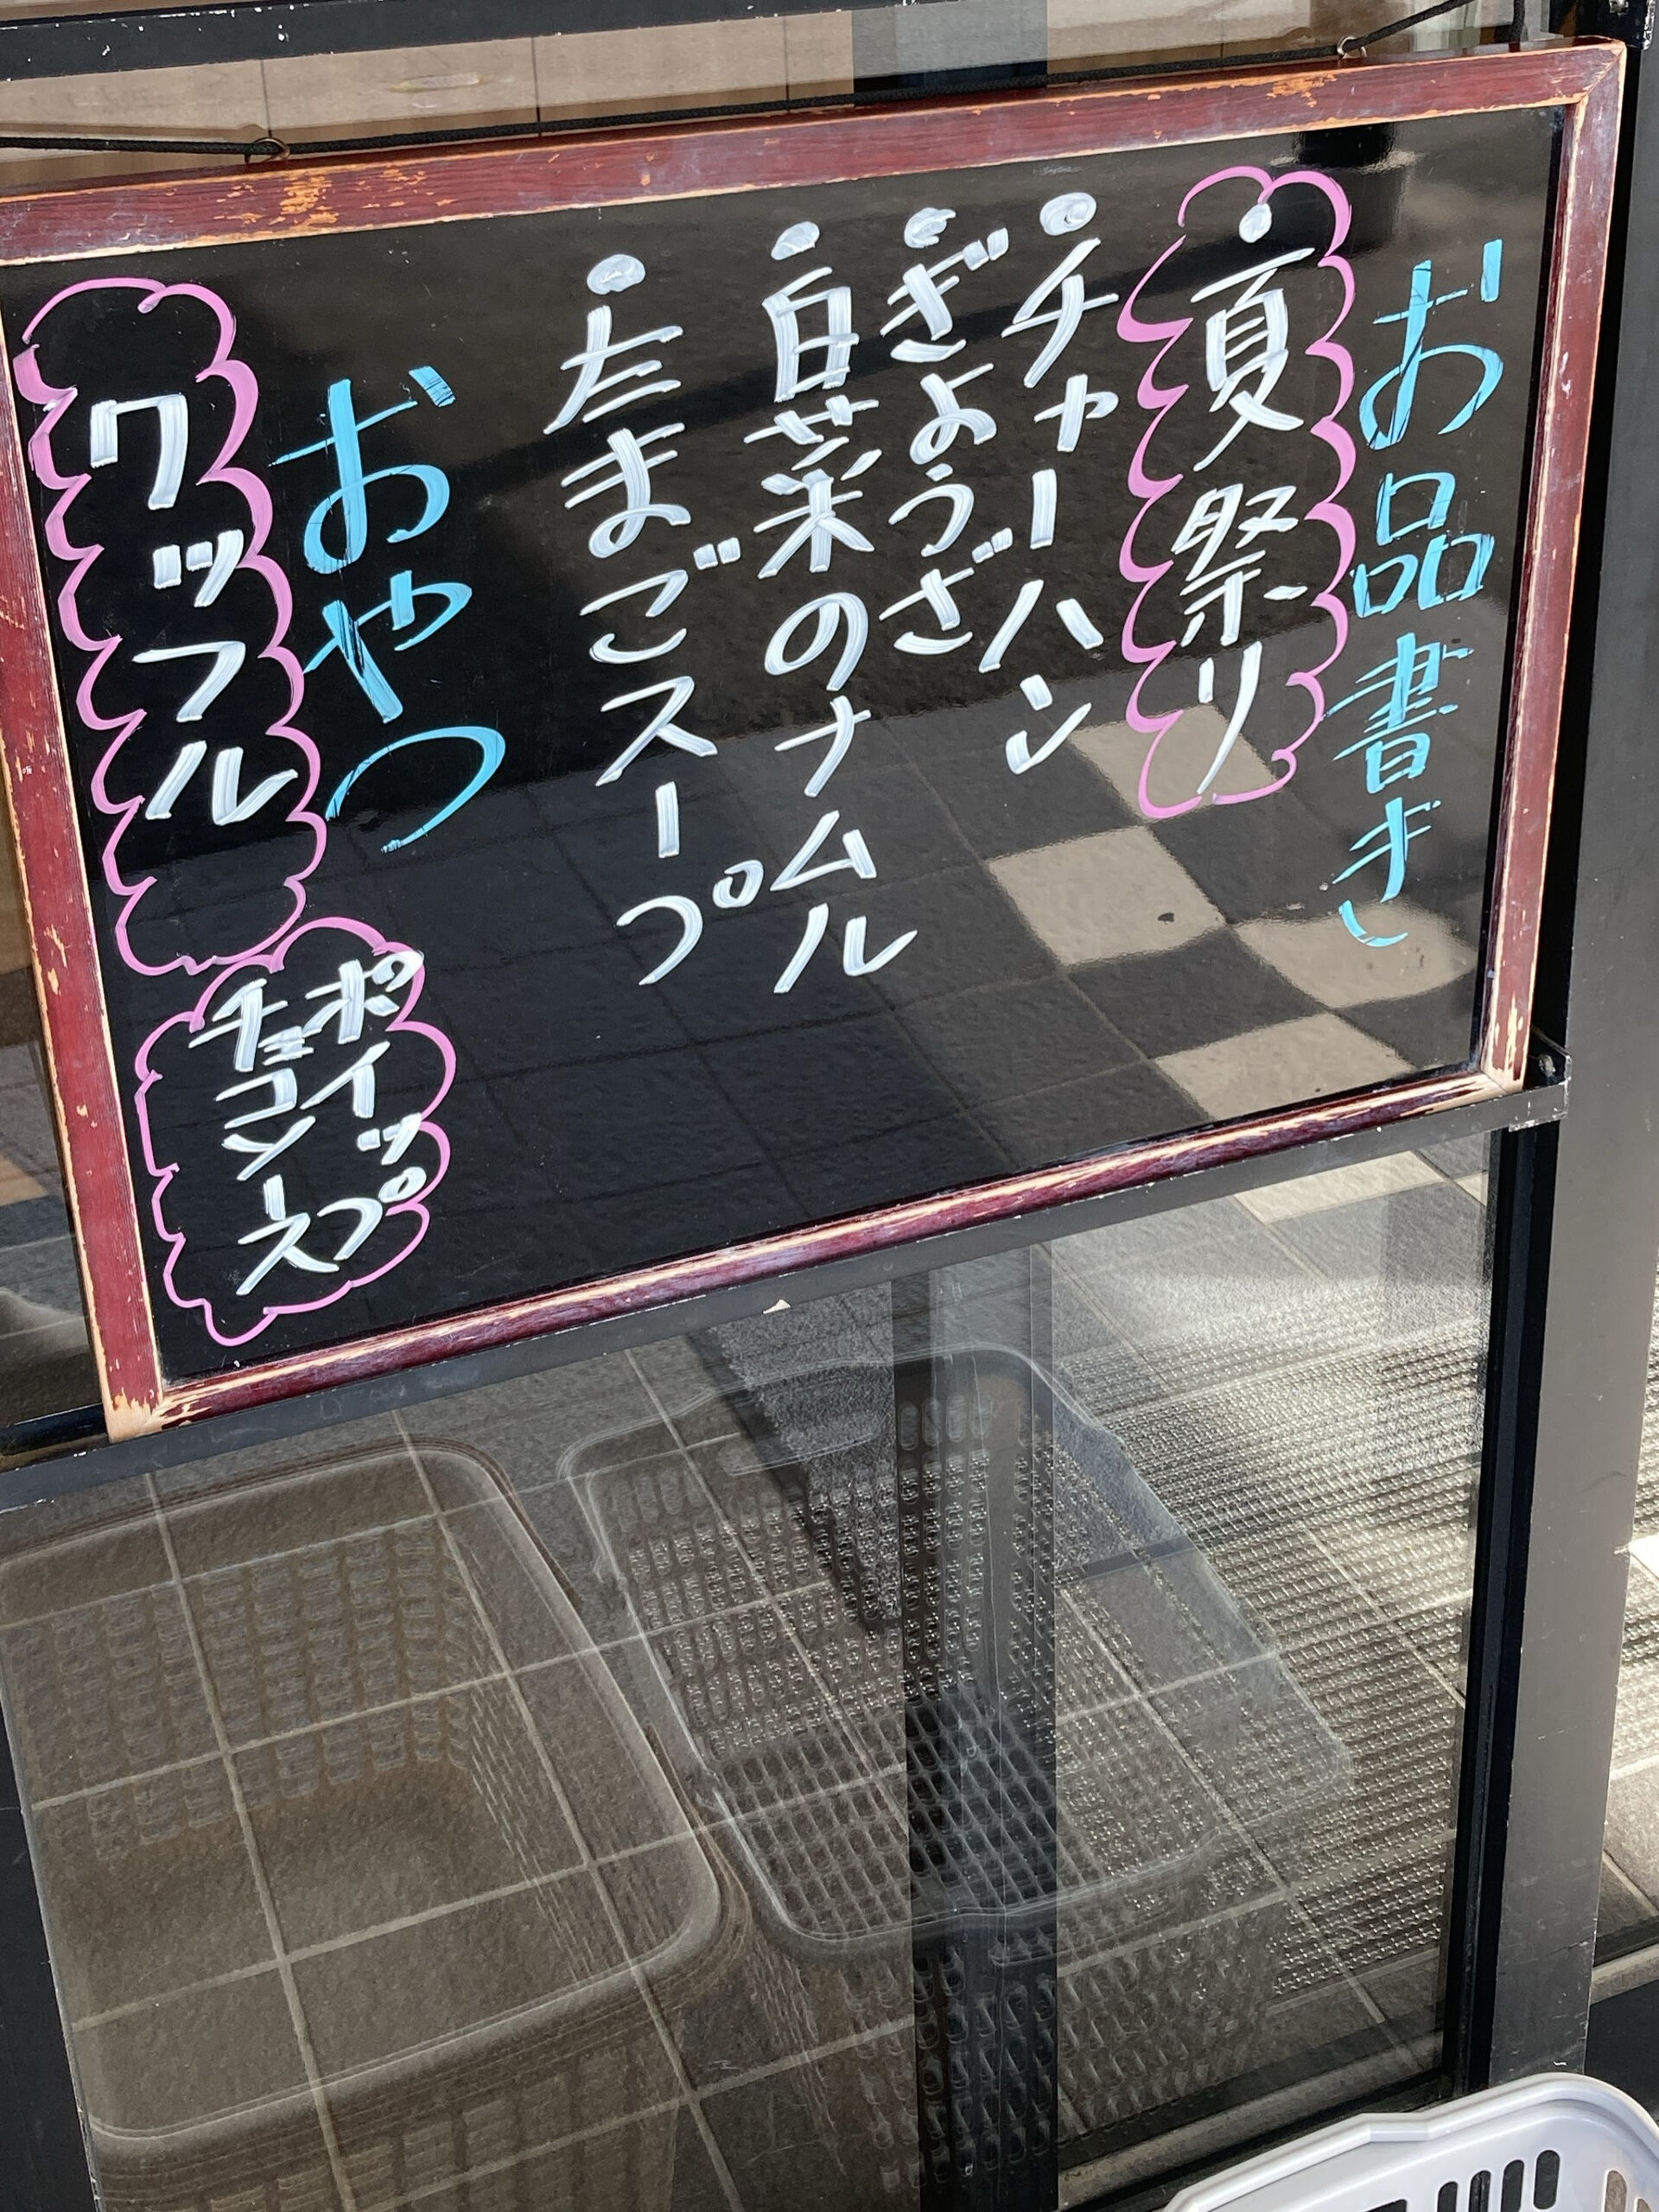 お品書き
・夏祭り
・チャーハン
・ぎょうざ
・白菜のナムル
・たまごスープ
おやつ
ワッフル
ポイップ
チョコソース